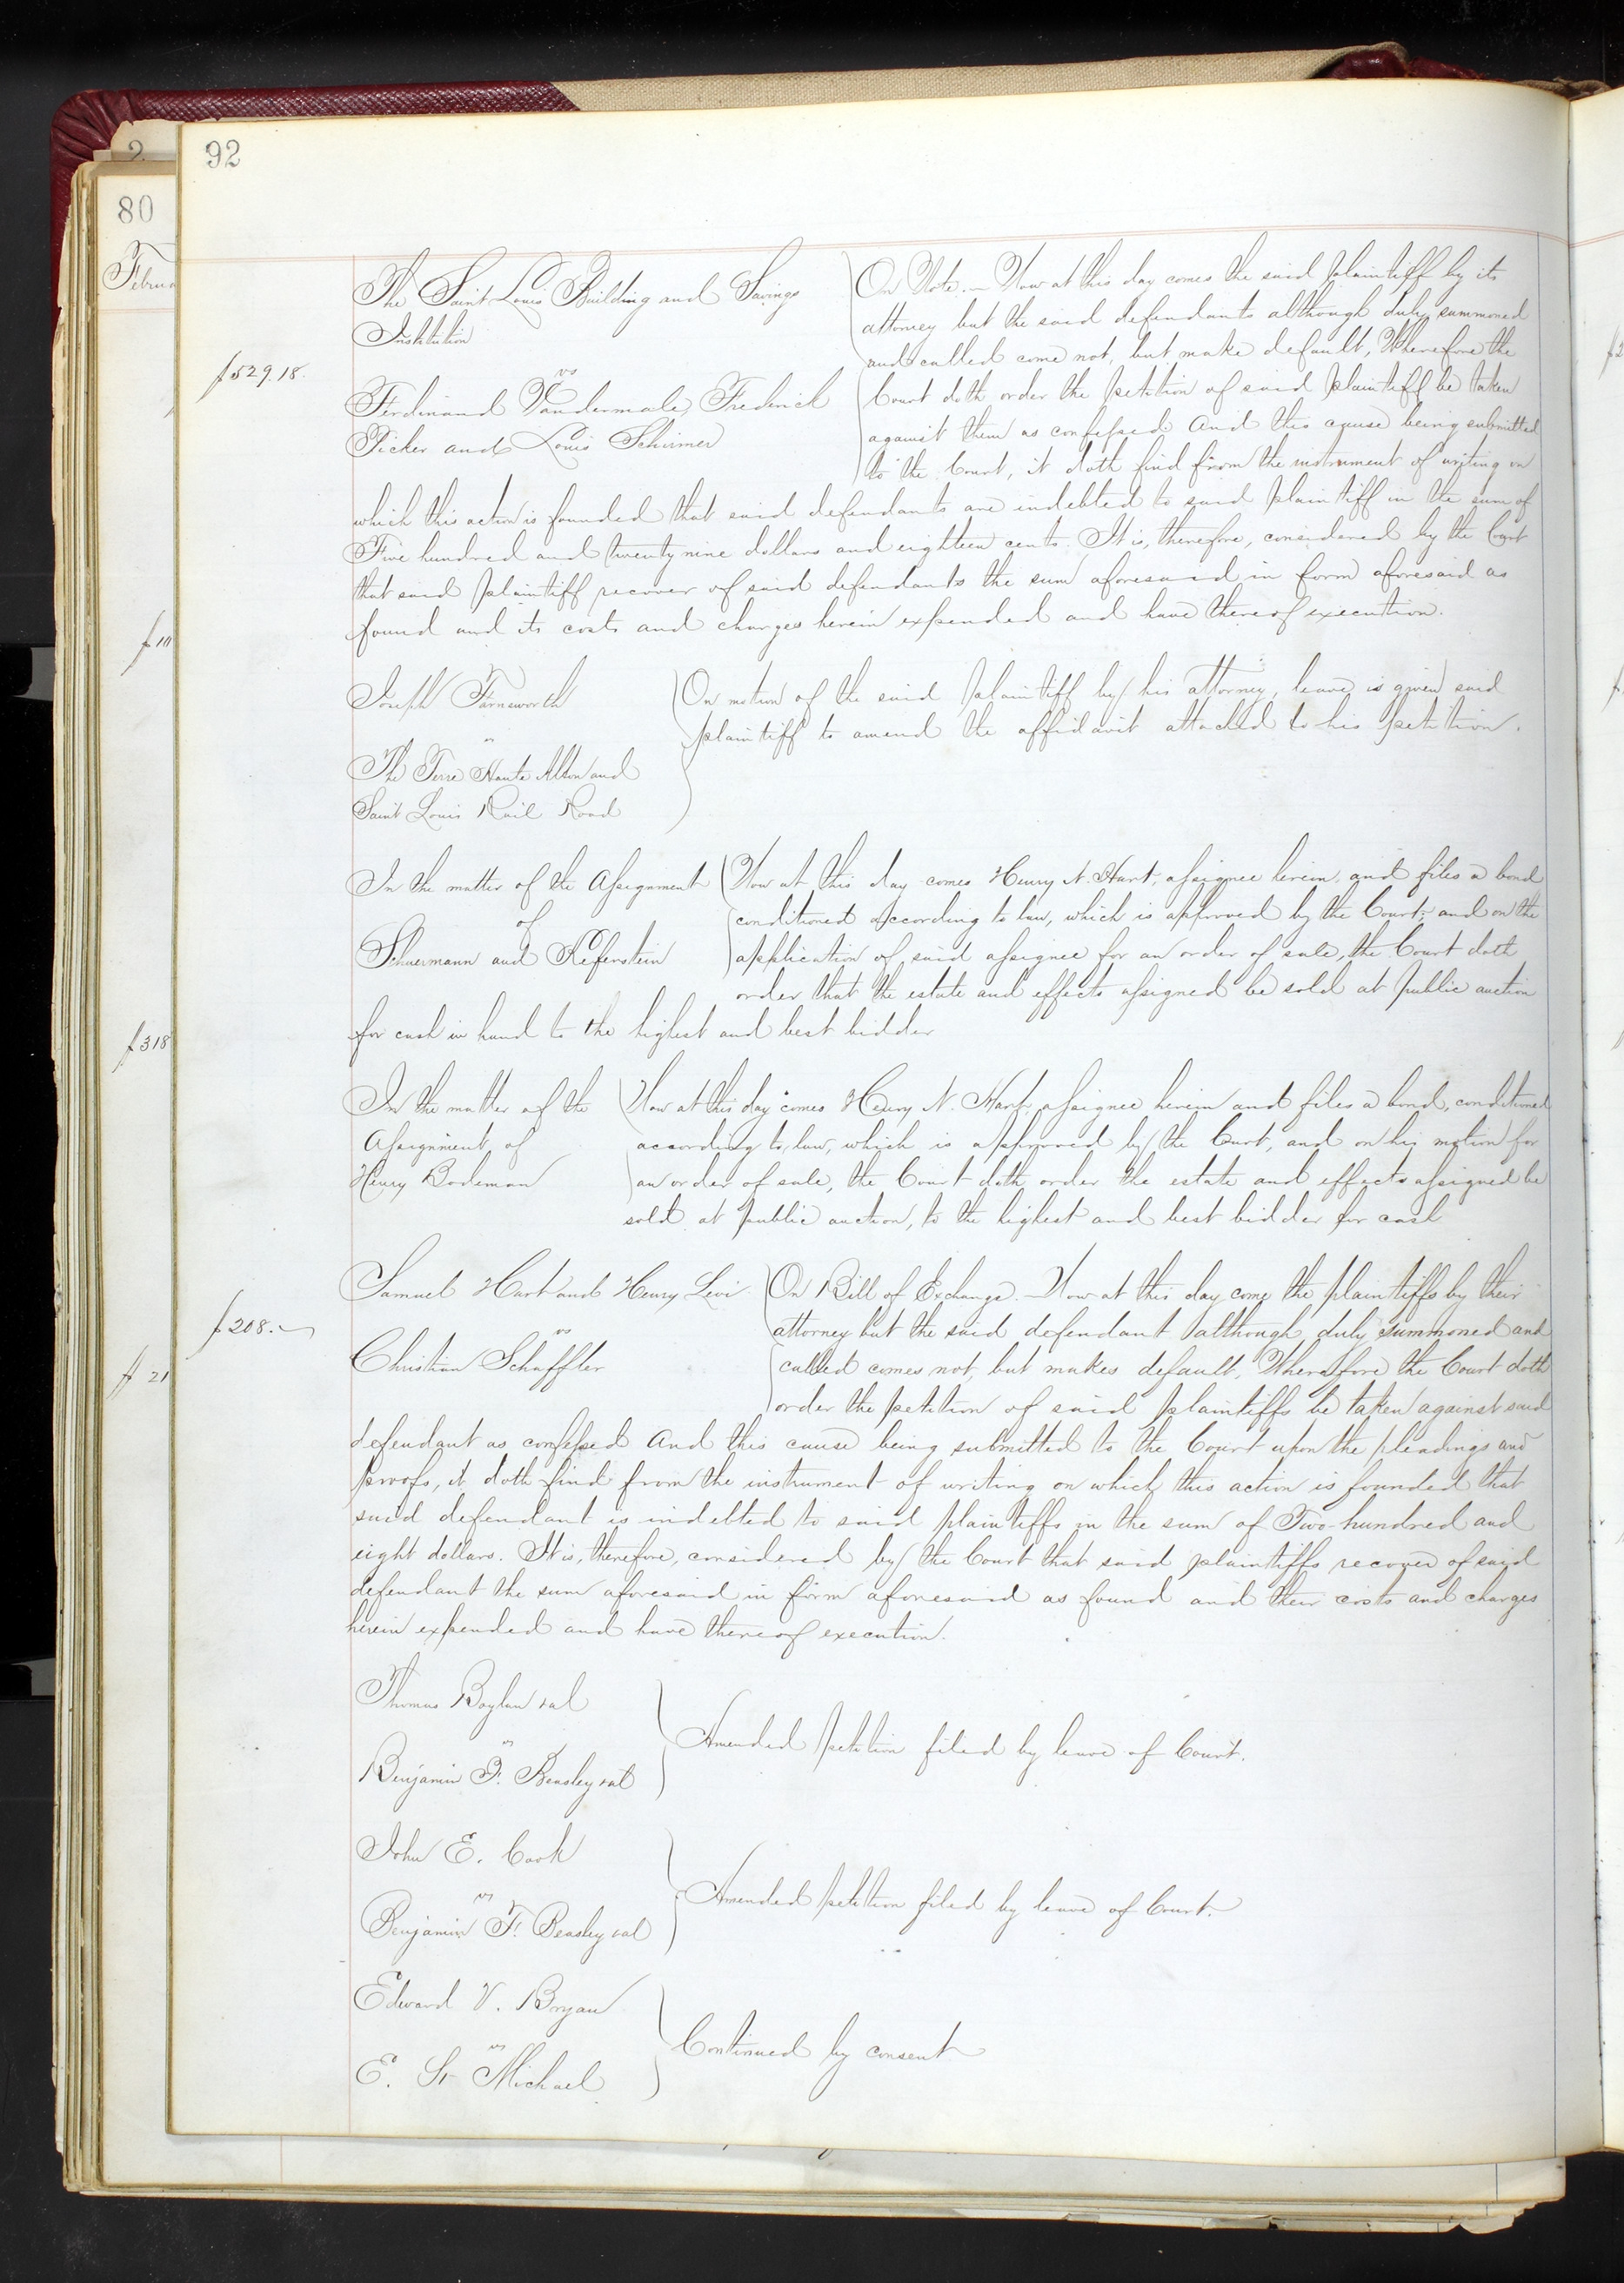 92
80
Februa
The Saint Louis Building and Savings
Institution
vs
Ferdinand Vandermale, Frederick
Picker and Louis Schirmer
f529.18.
On Note. — Now at this day comes the said plaintiff by its
attorney but the said defendants although duly summoned
and called come not, but make default, Wherefore the
Court doth order the petition of said plaintiff be taken
against them as confessed And this cause being submitted
to the Court, it doth find from the instrument of writing on
which this action is founded that said defendants are indebted to said plaintiff in the sum of
Five hundred and twenty nine dollars and eighteen cents. It is, therefore, considered by the Court
that said plaintiff recover of said defendants the sum aforesaid in form aforesaid as
found and its costs and charges herein expended and have thereof execution.
Joseph Farnsworth
vs
The Terre Haute Alton and
Saint Louis Rail Road
On motion of the said plaintiff by his attorney, leave is given said
plaintiff to amend the affidavit attached to his petition.
In the matter of the Assignment
of
Schuermann and Refenstein
Now at this day comes Henry N. Hart, assignee herein, and files a bond
conditioned according to law, which is approved by the Court; and on the
application of said assignee for an order of sale, the Court doth
order that the estate and effects assigned be sold at public auction
for cash in hand to the highest and best bidder
In the matter of the
Assignment of
Henry Bodeman
Now at this day comes Henry N. Hart, assignee herein and files a bond, conditioned
according to law, which is approved by the Court, and on his motion for
an order of sale, the Court doth order the estate and effects assigned be
sold at public auction, to the highest and best bidder for cash
Samuel Hart and Henry Levi
vs
Christian Schaffter
f208.—
On Bill of Exchange. — Now at this day come the plaintiffs by their
attorney but the said defendant although duly summoned and
called comes not, but makes default, Wherefore the Court doth
order the petition of said plaintiffs be taken against said
defendant as confessed And this cause being submitted to the Court upon the pleadings and
proofs, it doth find from the instrument of writing on which this action is founded that
said defendant is indebted to said plaintiffs in the sum of Two hundred and
eight dollars. It is, therefore, considered by the Court that said plaintiffs recover of said
defendant the sum aforesaid in form aforesaid as found and their costs and charges
herein expended and have thereof execution.
Thomas Boylan & al
vs
Benjamin F. Beasley & al
Amended petition filed by leave of Court.
John E. Cook
vs
Benjamin F. Beasley & al
Amended petition filed by leave of Court.
Edward V. Bryan
vs
E. St Michael
Continued by consent
f318
f 21